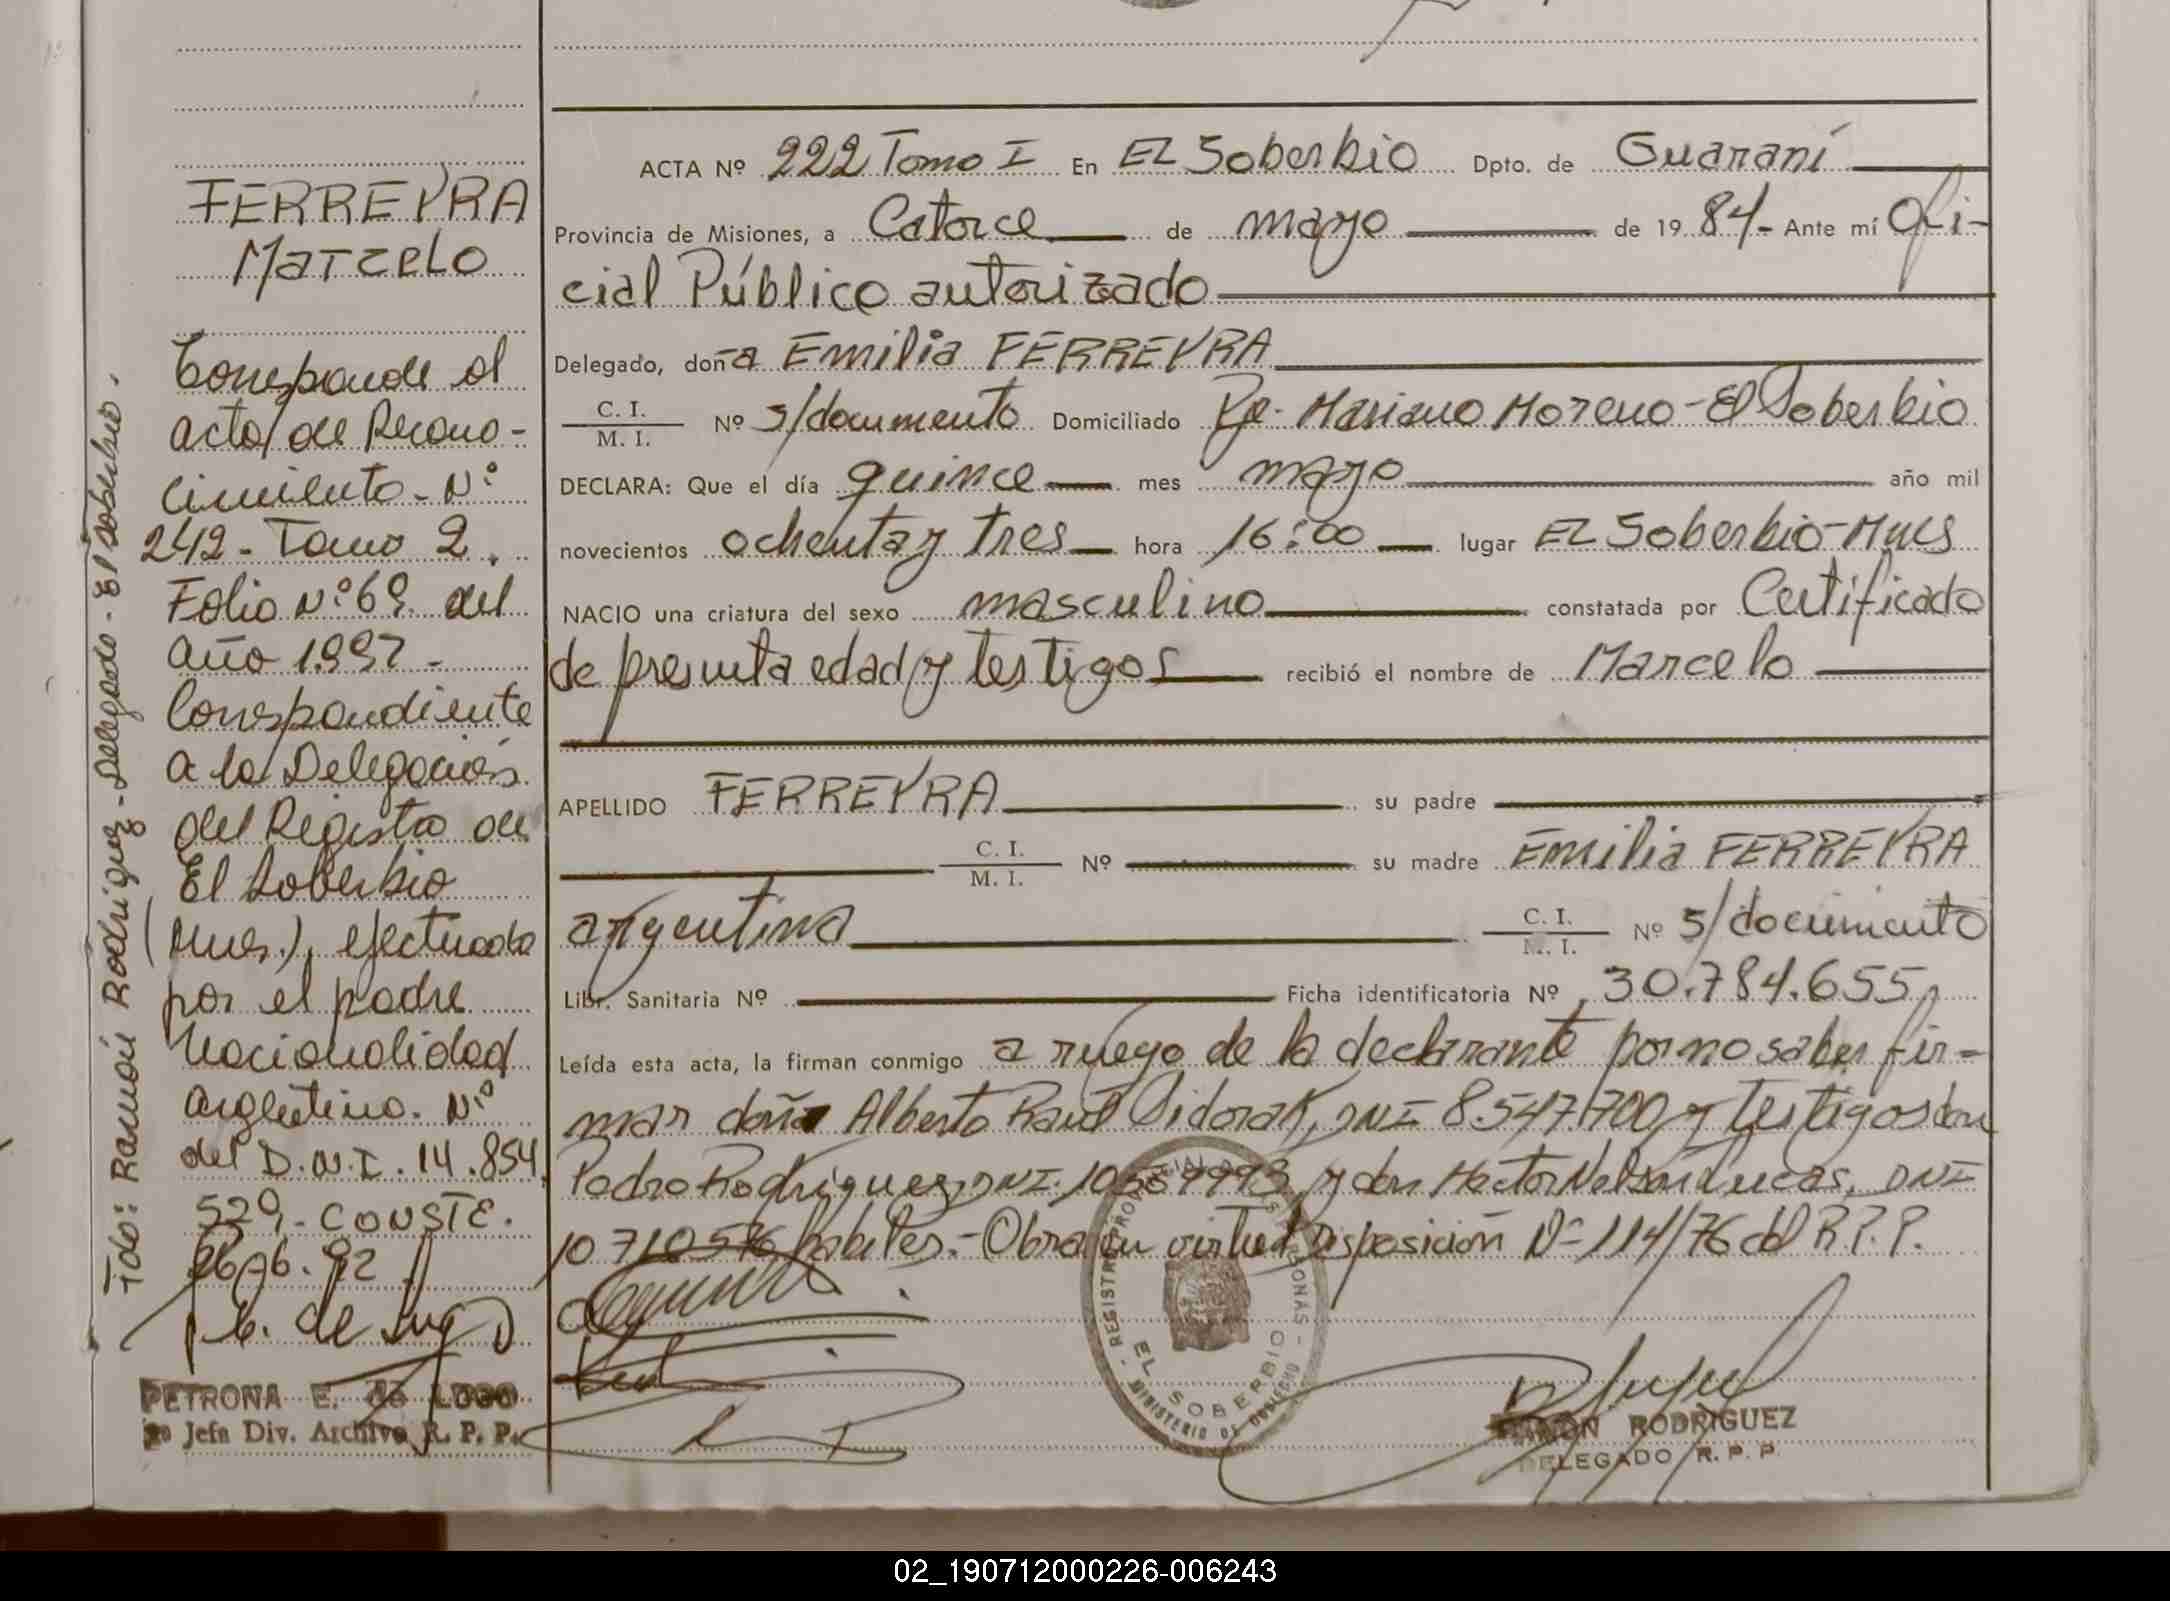 FERREYRA
Marcelo
Corresponde al
acta de Recono-
cimiento - Nº
242 - Tomo 2.
Folio Nº 69 del
año 1.997 -
Correspondiente
a la Delegación
del Registro de
El Soberbio
(Mnes.), efectuada
por el padre
Nacionalidad
argentino. Nº
del D.N.I. 14.854.
529.- CONSTE.
PETRONA E. de LUGO
Jefa Div. Archivo R. P. P.
Fdo: Ramón Rodriguez - Delegado - El Soberbio.
ACTA Nº 222 Tomo I En El Soberbio Dpto. de Guaraní
Provincia de Misiones, a Catorce de mayo de 1984- Ante mí Ofi-
cial Público autorizado
Delegado, doña Emilia FERREYRA
C. I.
M. I. Nº s/documento Domiciliado Pje. Mariano Moreno - El Soberbio
DECLARA: Que el día quince mes mayo año mil
novecientos ochenta y tres hora 16:00 lugar El Soberbio - Mnes
NACIO una criatura del sexo masculino constatada por Certificado
de presunta edad y testigos recibió el nombre de Marcelo
APELLIDO FERREYRA su padre
C. I.
M. I. Nº su madre Emilia FERREYRA
argentina C. I.
M. I. Nº s/documento
Libr. Sanitaria Nº Ficha identificatoria Nº 30.784.655
Leída esta acta, la firman conmigo a ruego de la declarante por no saber fir-
mar don Alberto Raúl Sidorak, DNI 8.547.700 y testigos don
Pedro Rodriguez, DNI. y don Hector Nelson Lucas, DNI
hábiles.- Obra en virtud Disposición Nº 114/76 del R.P.P.
EL SOBERBIO
MINISTERIO DE GOBIERNO
RAMON RODRIGUEZ
DELEGADO R. P. P.
02_190712000226-006243